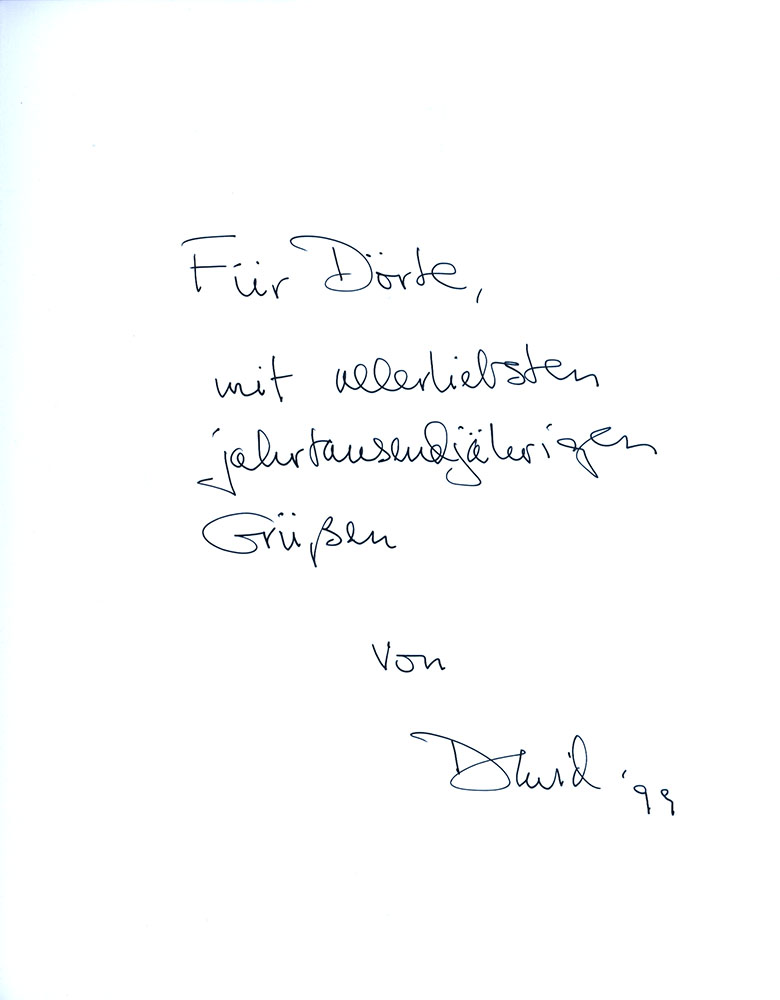 Für Dörte,
mit allerliebsten
jahrtausendjährigen
Grüßen
von
David '99